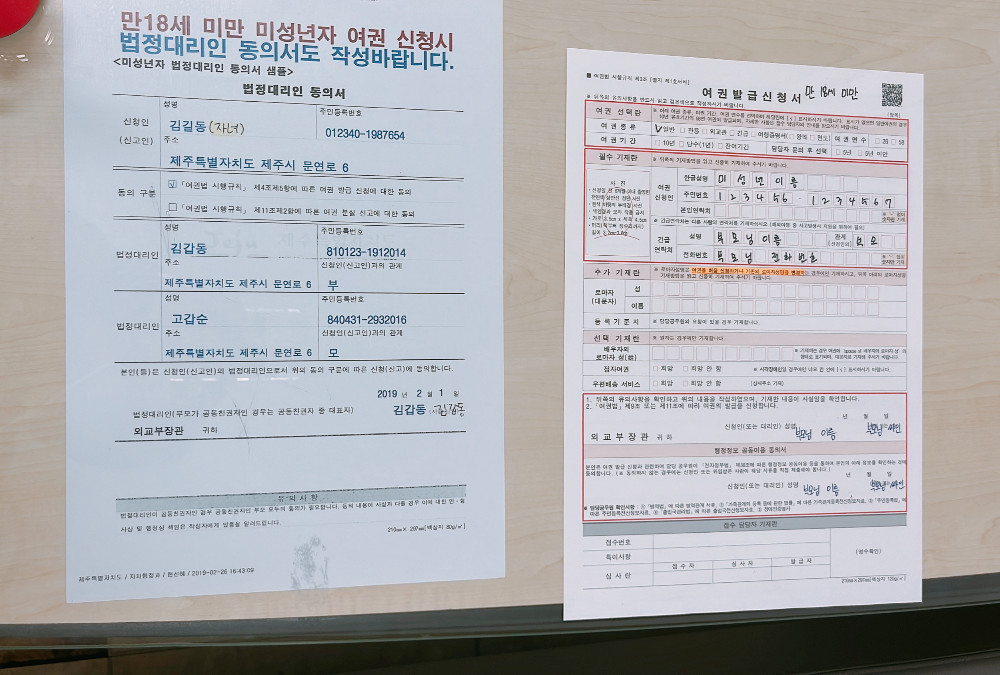 만18세 미만 미성년자 여권 신청시
법정대리인 동의서도 작성바랍니다.
<미성년자 법정대리인 동의서 샘플>
법정대리인 동의서
신청인
(신고인)
성명
김길동 (자녀)
주민등록번호
012340-1987654
주소
제주특별자치도 제주시 문연로 6
동의 구분
☑ 「여권법 시행규칙」 제4조제5항에 따른 여권 발급 신청에 대한 동의
☐ 「여권법 시행규칙」 제11조제2항에 따른 여권 분실 신고에 대한 동의
법정대리인
성명
김갑동
주민등록번호
810123-1912014
주소
제주특별자치도 제주시 문연로 6
신청인(신고인)과의 관계
부
법정대리인
성명
고갑순
주민등록번호
840431-2932016
주소
제주특별자치도 제주시 문연로 6
신청인(신고인)과의 관계
모
본인(등)은 신청인(신고인)의 법정대리인으로서 위의 동의 구분에 따른 신청(신고)에 동의합니다.
2019 년 2 월 1 일
법정대리인(부모가 공동친권자인 경우는 공동친권자 중 대표자) 김갑동 김갑동
외교부장관 귀하
유의사항
법정대리인이 공동친권자인 경우 공동친권자인 부모 모두의 동의가 필요합니다. 동의 내용이 사실과 다를 경우 이에 대한 민·형
사상 및 행정상 책임은 작성자에게 있음을 알려드립니다.
210㎜× 297㎜[백상지 80g/㎡]
제주특별자치도 / 자치행정과 / 현산혜 / 2019-02-26 16:43:09
■ 여권법 시행규칙 [별지 제1호서식]
여권발급신청서 만 18세 미만
여권 선택란
여권 종류
☑일반 ☐관용 ☐외교관 ☐긴급 ☐여행증명서(☐왕복 ☐편도)
여권 면수
☐26 ☐58
여권 기간
☐10년 ☐단수(1년) ☐잔여기간
담당자 문의 후 선택
☐5년 ☐5년 미만
필수 기재란
※ 뒤쪽의 기재방법을 읽고 신중히 기재하여 주시기 바랍니다.
사 진
여권
신청인
한글성명
미성년이름
주민번호
123456-1234567
본인연락처
긴급
연락처
성명
부모님이름
관계
(신청인의)
부모
전화번호
부모님 전화번호
추가 기재란
로마자
(대문자)
성
이름
등록기준지
※ 담당공무원의 요청이 있을 경우 기재합니다.
선택 기재란
※ 원하는 경우에만 기재합니다.
배우자의
로마자 성(姓)
점자여권
☐ 희망 ☐ 희망 안 함
※ 시각장애인일 경우에만 네모 칸 안에 [√] 표시하시기 바랍니다.
우편배송 서비스
☐ 희망 ☐ 희망 안 함
(상세주소 기재)
1. 뒤쪽의 유의사항을 확인하고 위의 내용을 작성하였으며, 기재한 내용이 사실임을 확인합니다.
2. 「여권법」 제9조 또는 제11조에 따라 여권의 발급을 신청합니다.
년 월 일
신청인(또는 대리인) 성명 부모님 이름 부모님 사인
외교부장관 귀하
행정정보 공동이용 동의서
년 월 일
신청인(또는 대리인) 성명 부모님 이름 부모님 사인
접수 담당자 기재란
접수번호
특이사항
(접수확인)
심사란
접수자
심사자
발급자
210㎜×297㎜[백상지 120g/㎡]